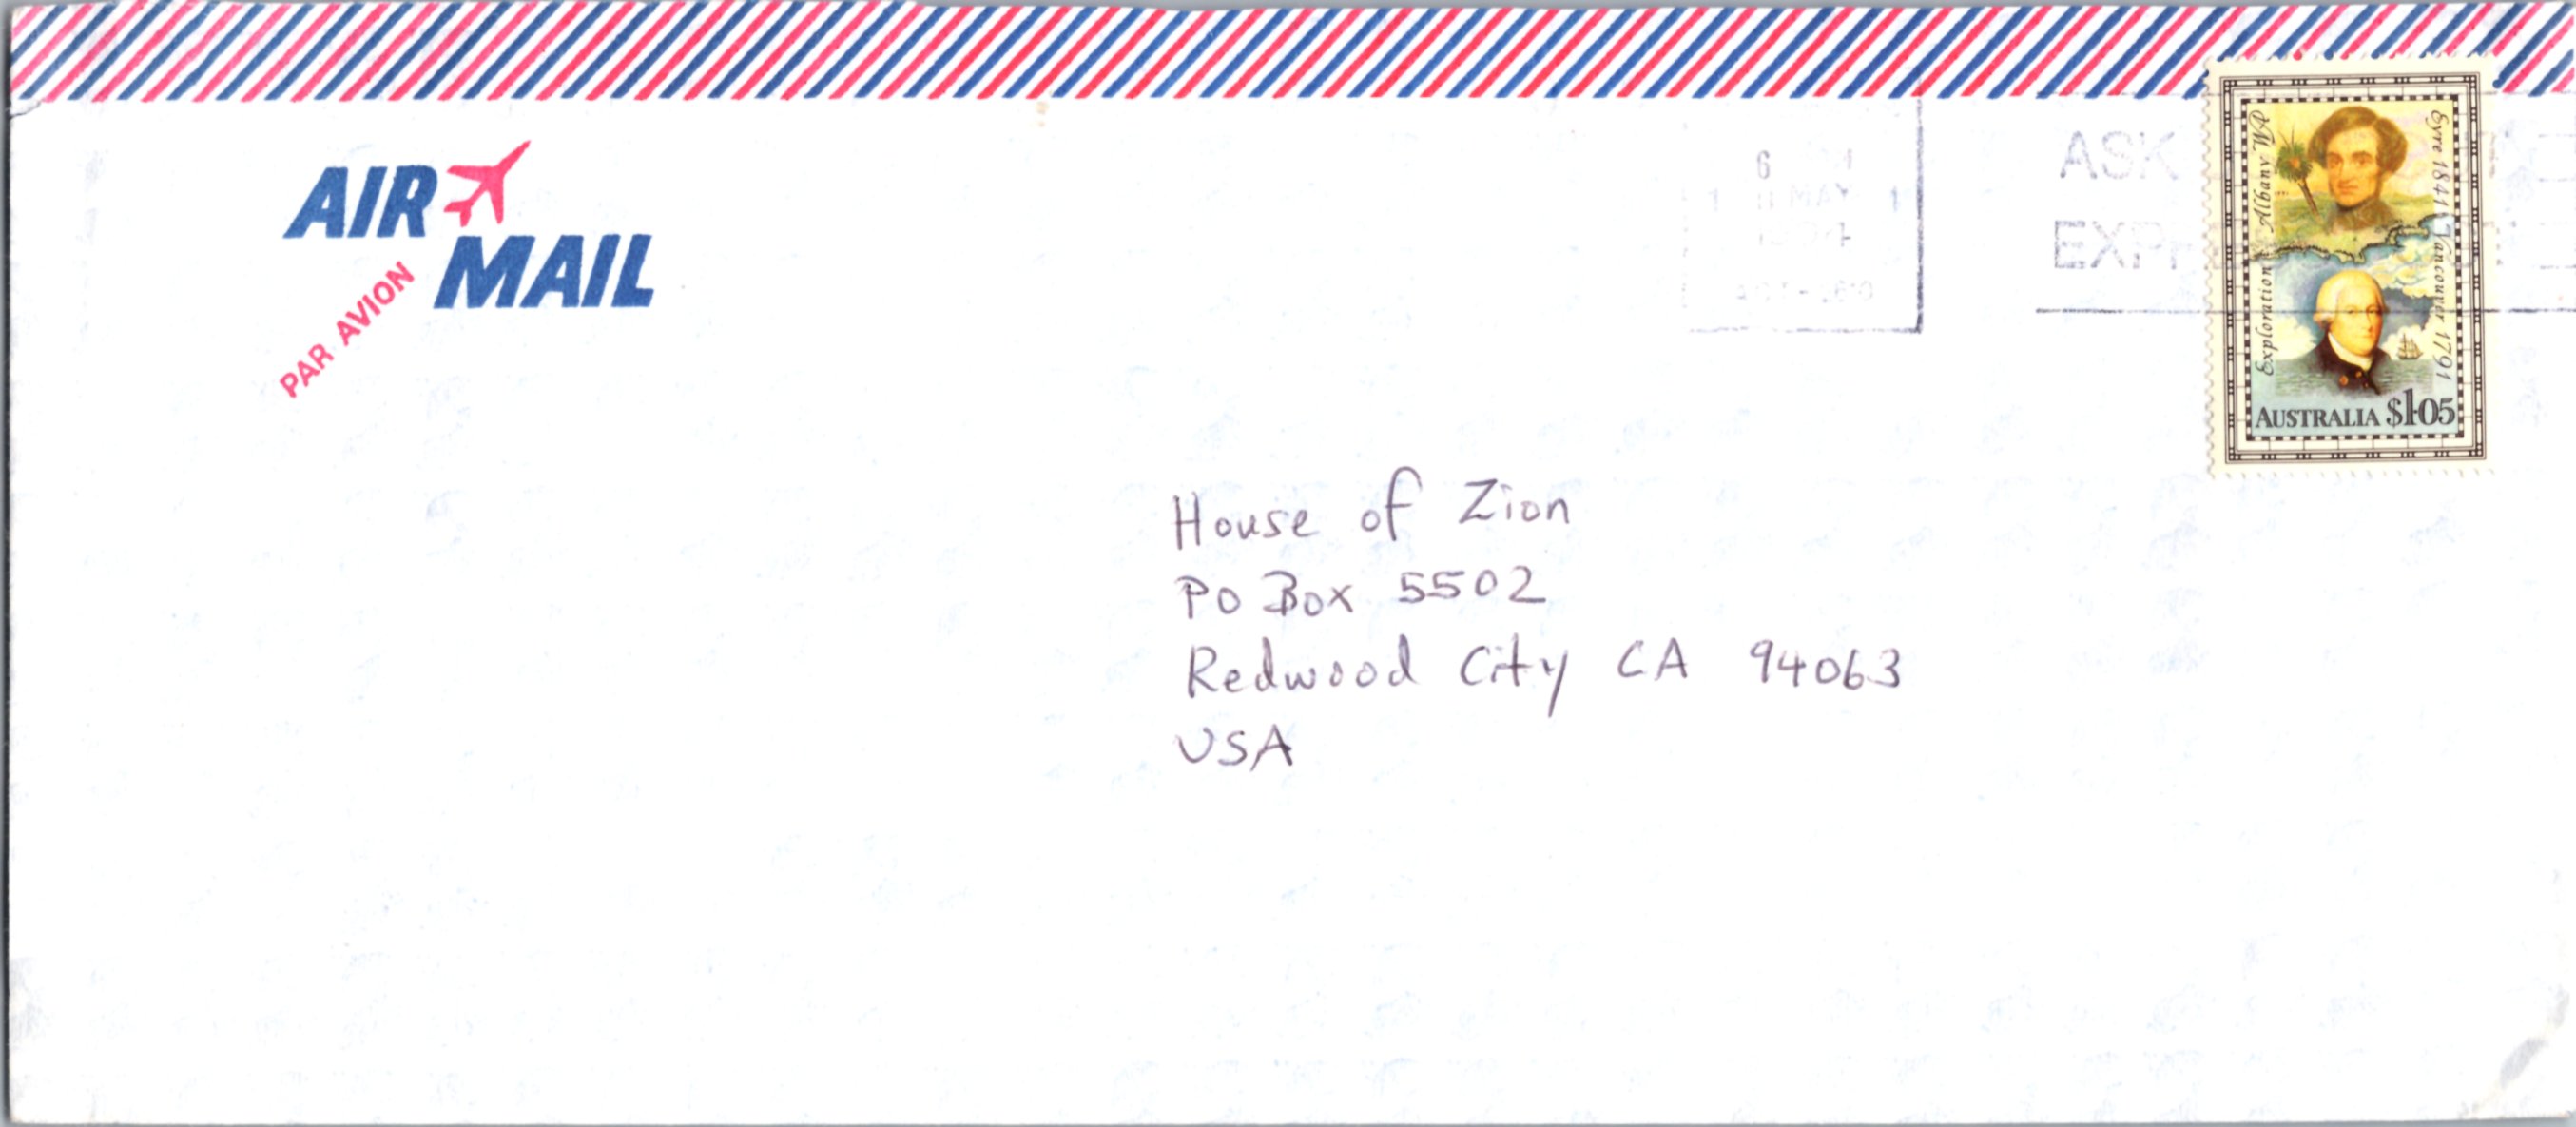 AIR
MAIL
PAR AVION
6
11 MAY
ASK
EXP
Eyre 1841 Vancouver 1791
Exploration Albany WA
AUSTRALIA $1.05
House of Zion
PO Box 5502
Redwood City CA 94063
USA